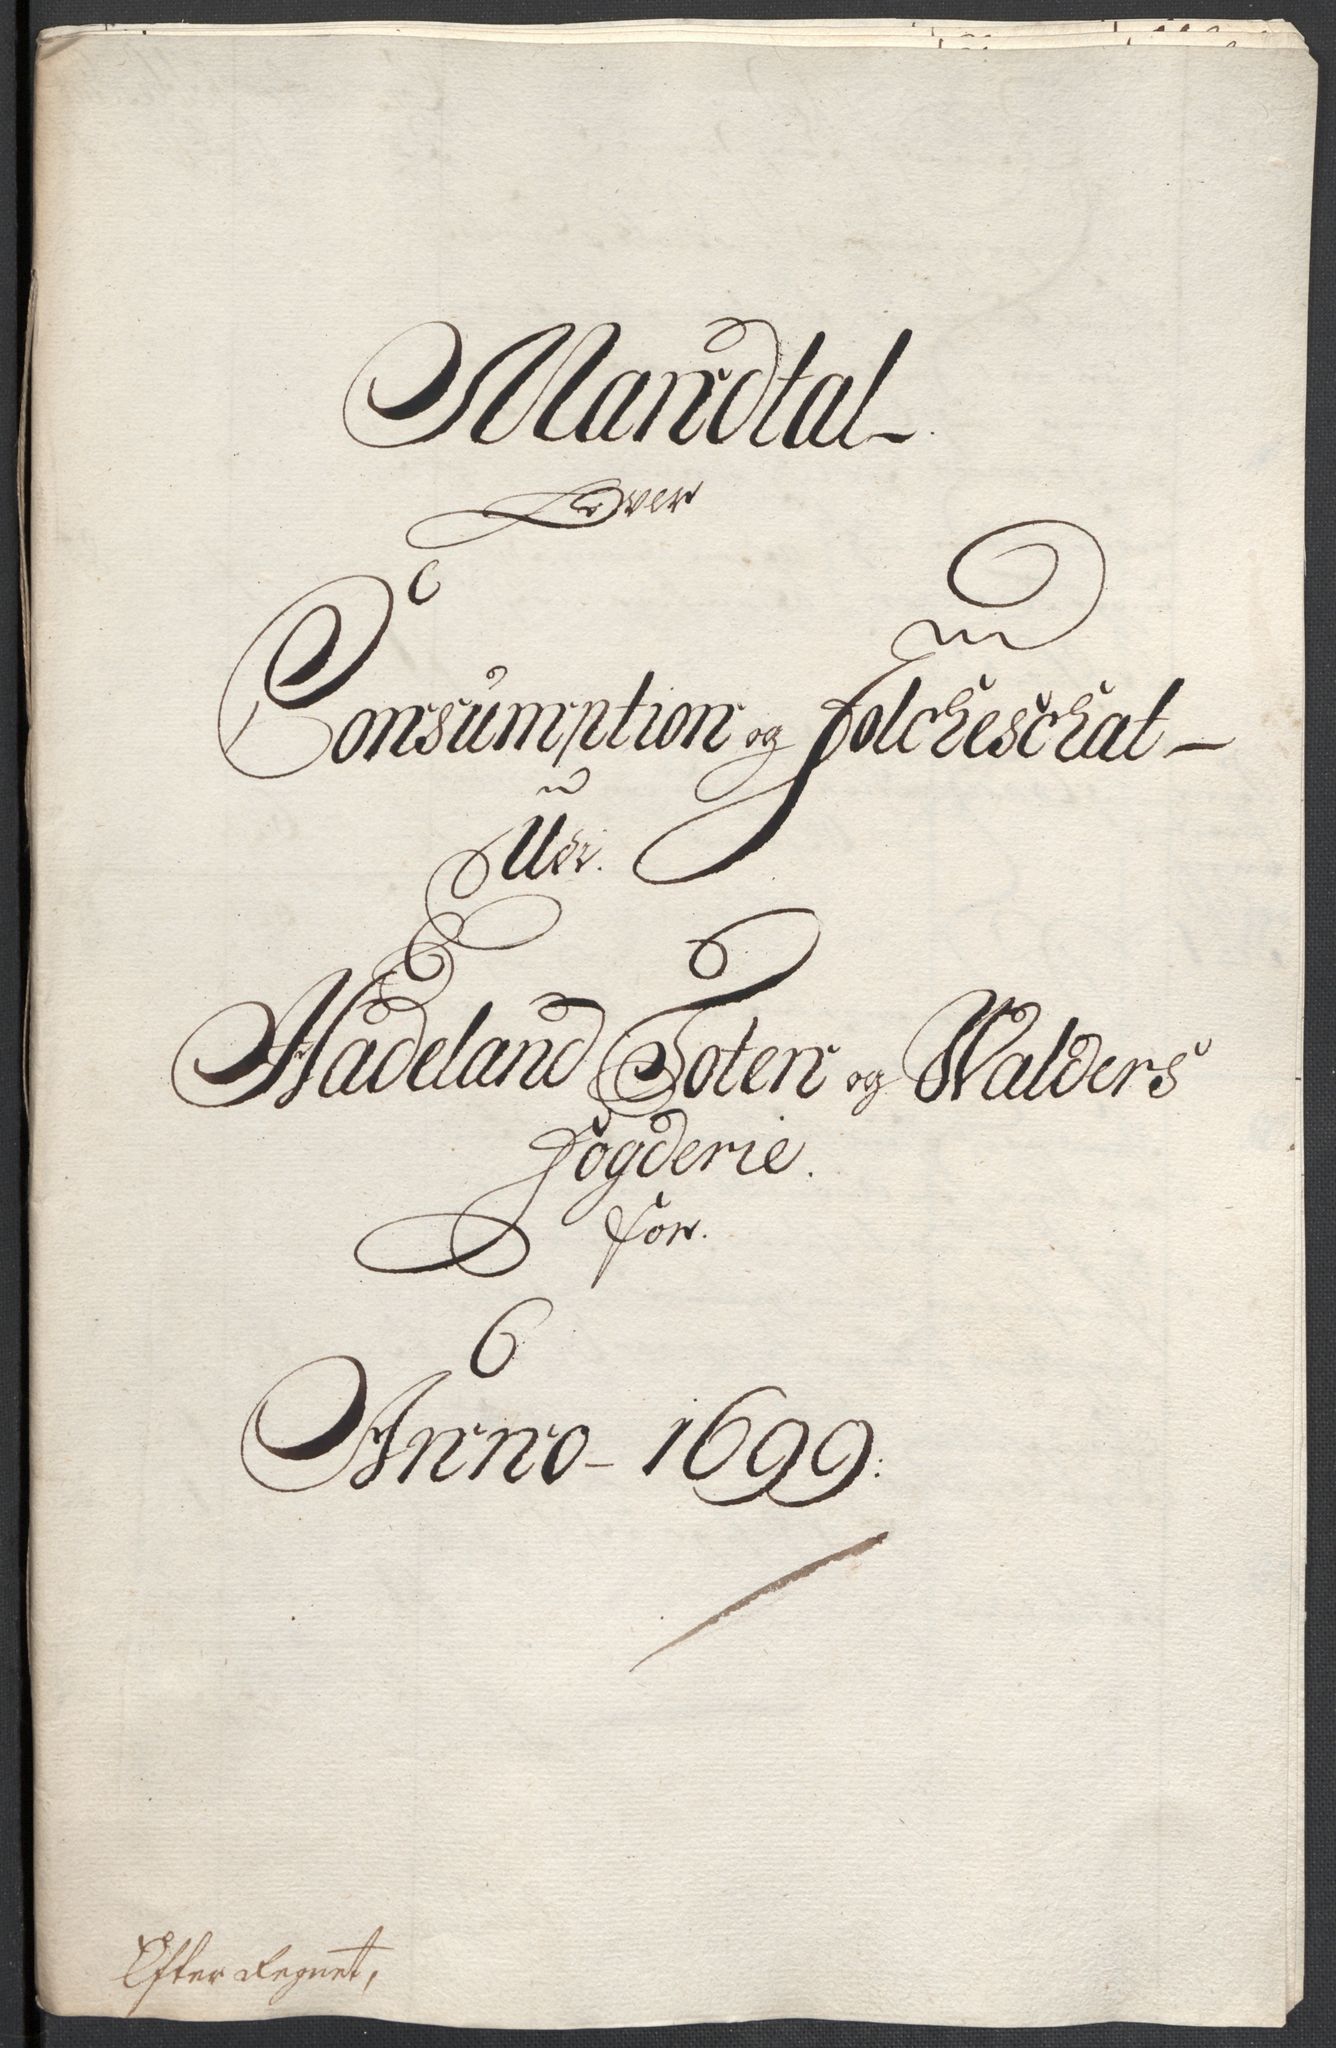 Mandtal
Over
Consumption og Folcheschat
Udi.
Hadeland Toten og Walders
Fogderie.
for.
Anno 1699.
Efter Regnet,